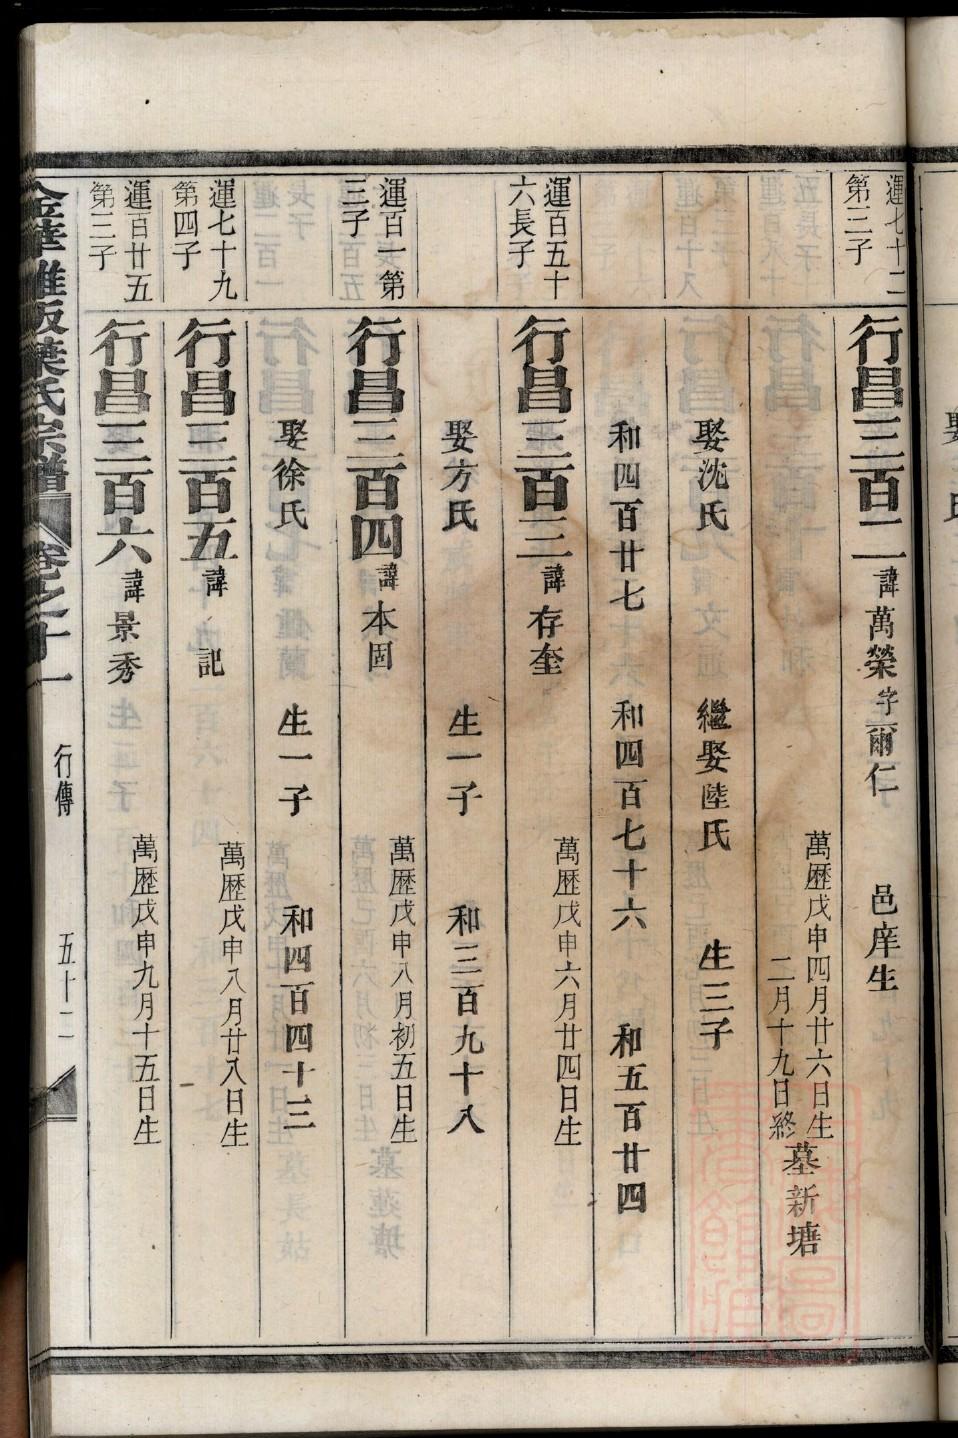 運七十二
第三子
行昌三百二諱萬榮字爾仁 邑庠生
萬歷戊申四月廿六日生
二月十九日終
墓新塘
娶沈氏 繼娶陸氏 生三子
和四百廿七 和四百七十六 和五百廿四
運百五十
六長子
行昌三百三諱存奎
萬歷戊申六月廿四日生
娶方氏 生一子 和三百九十八
運百一第
三子
行昌三百四諱本固
萬歷戊申八月初五日生
娶徐氏 生一子 和四百四十三
運七十九
第四子
行昌三百五諱 記
萬歷戊申八月廿八日生
運百廿五
第三子
行昌三百六諱景秀
萬歷戊申九月十五日生
金華雅畈葉氏宗譜 卷之十一 行傳 五十二
娶 氏